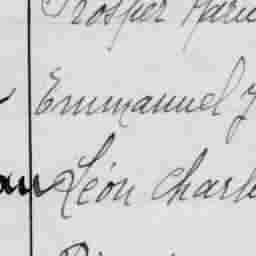 Prosper Marie
Emmanuel J
Léon Charl